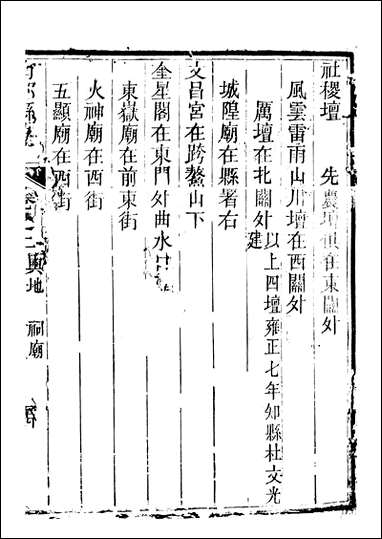 社稷壇　先農壇俱在東關外
風雲雷雨山川壇在西關外
厲壇在北關外以上四壇雍正七年知縣杜文光建
城隍廟在縣署右
文昌宮在跨鰲山下
奎星閣在東門外曲水
東嶽廟在前東街
火神廟在西街
五顯廟在西街
縣志
輿地
祠廟